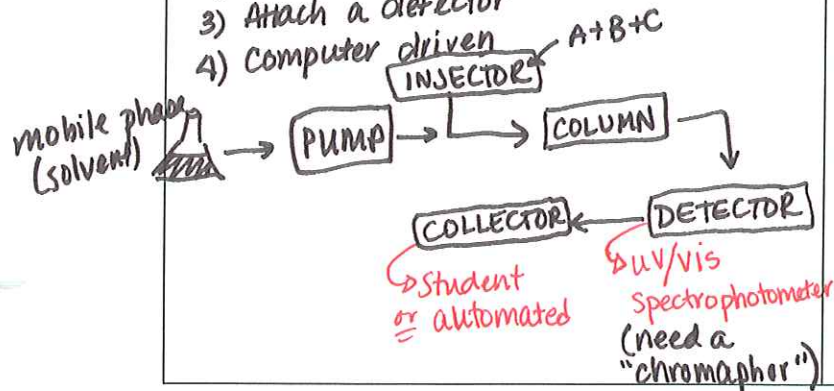 3) Attach a detector
4) Computer driven
A+B+C
INJECTOR
mobile phase
(solvent)
PUMP
COLUMN
COLLECTOR
DETECTOR
Student
or automated
UV/vis
Spectrophotometer
(need a
"chromaphor")